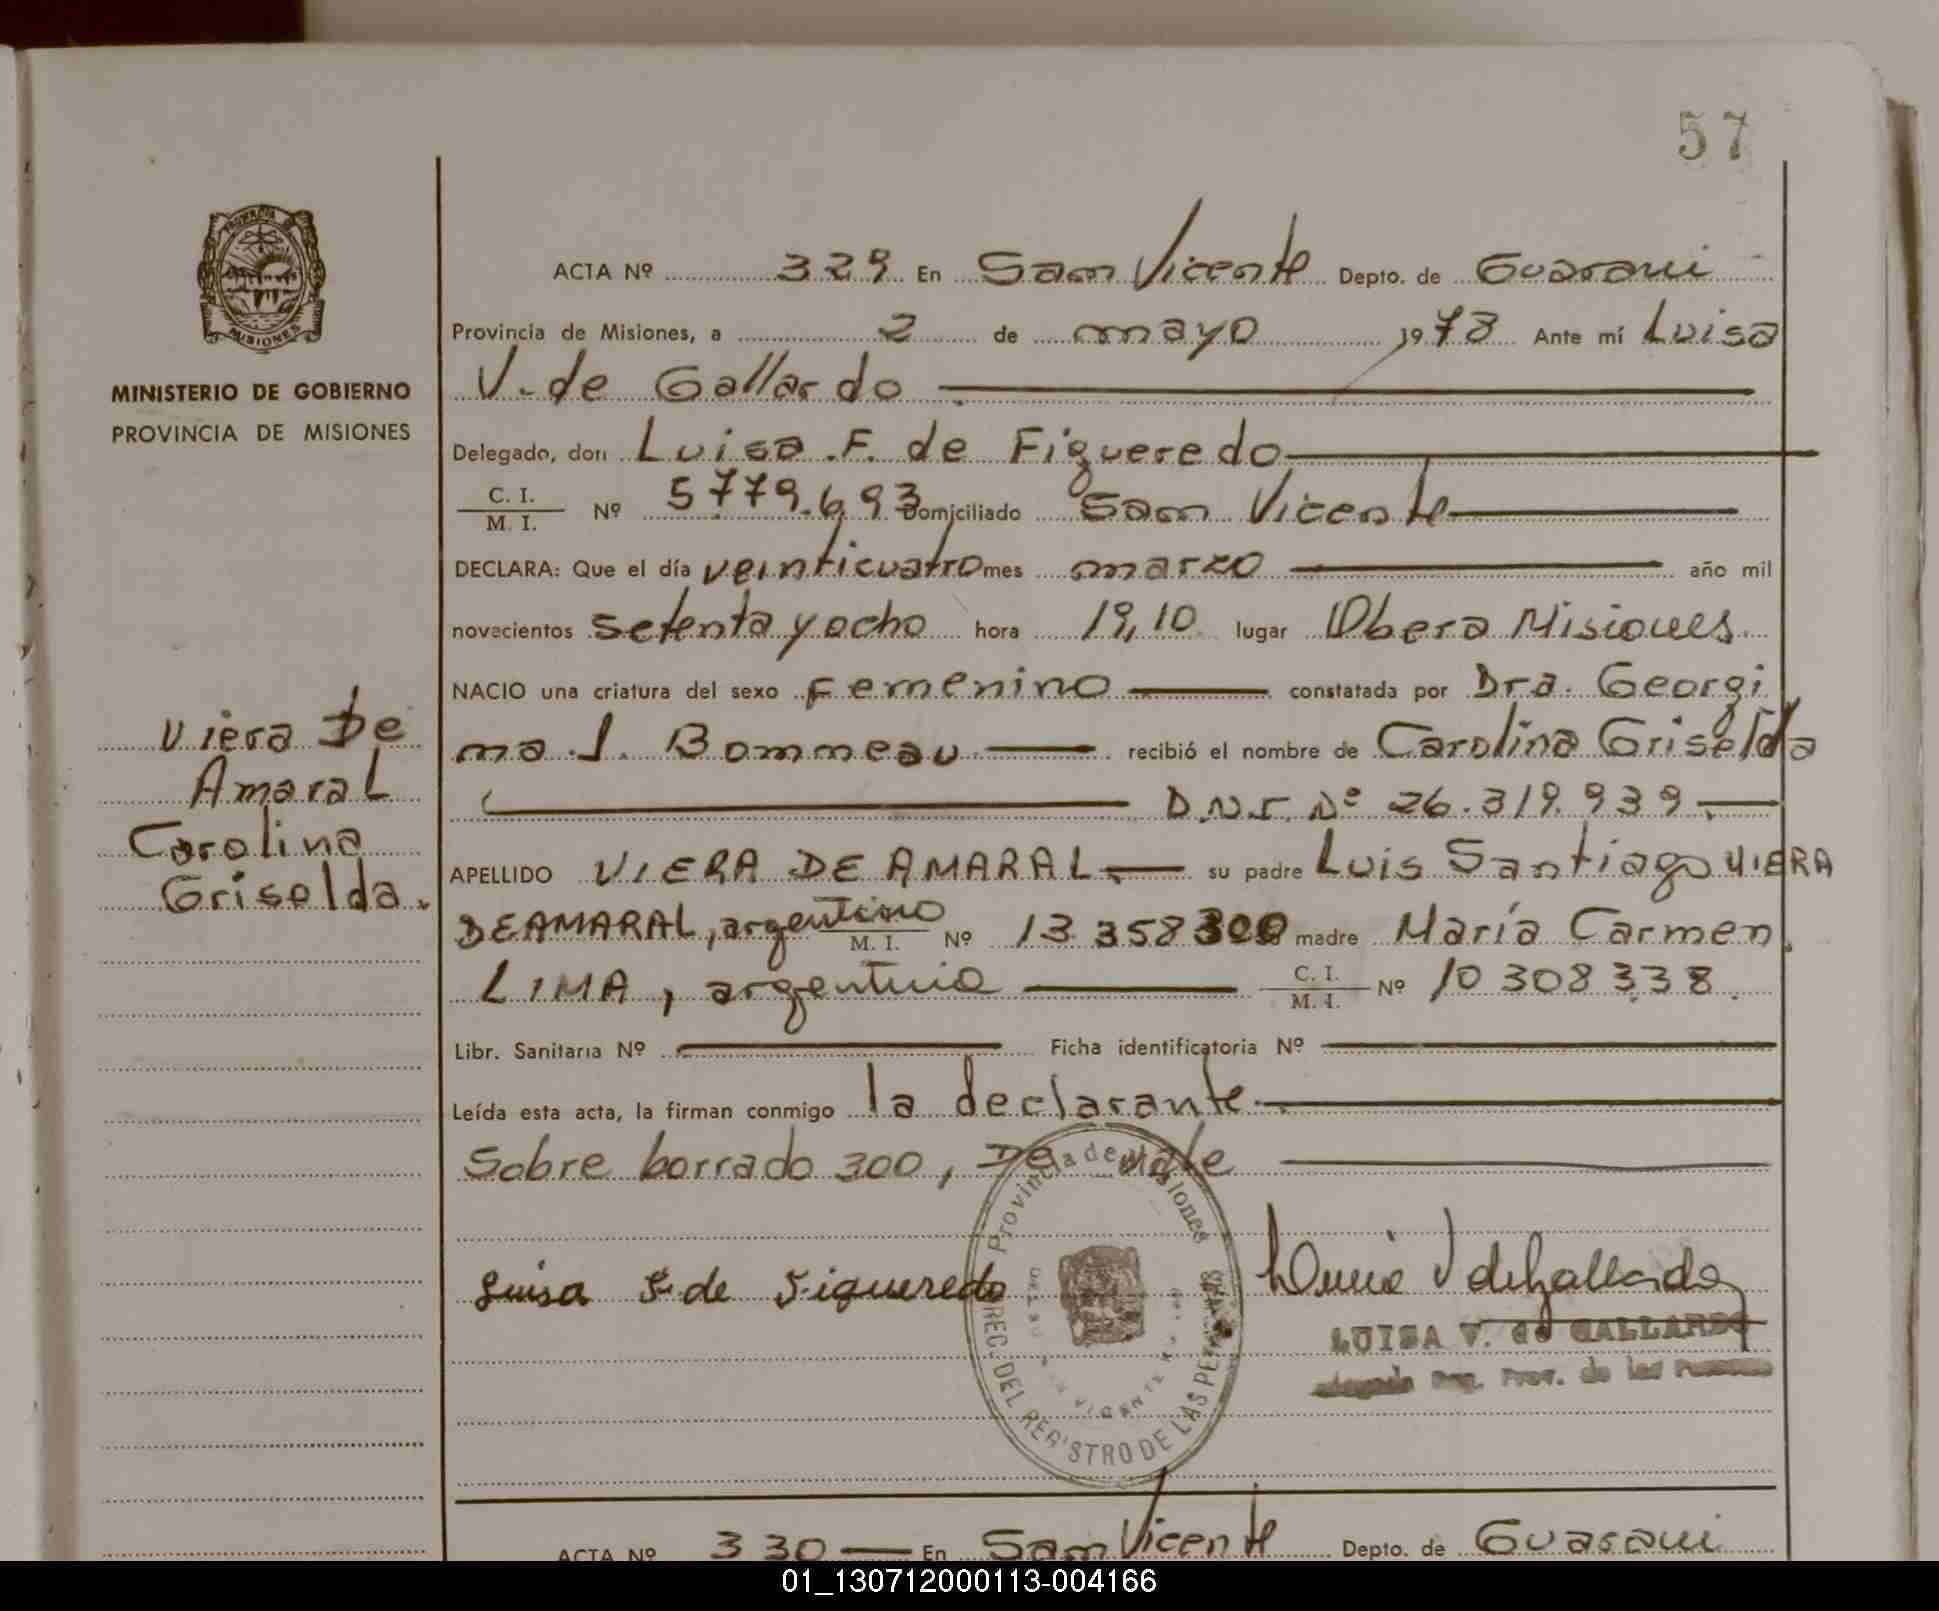 57
PROVINCIA DE
MISIONES
MINISTERIO DE GOBIERNO
PROVINCIA DE MISIONES
Viera De
Amaral
Carolina
Griselda.
ACTA Nº 329 En San Vicente Depto. de Guarani
Provincia de Misiones, a 2 de mayo 1978 Ante mí Luisa
V. de Gallardo
Delegado, don Luisa F. de Figueredo
C. I.
M. I. Nº 5779.693 Domiciliado San Vicente
DECLARA: Que el día veinticuatro mes marzo año mil
novecientos setenta y ocho hora 19,10 lugar Obera Misiones
NACIO una criatura del sexo Femenino constatada por Dra. Georgi
na J. Bonneau recibió el nombre de Carolina Griselda
D.N.I. Nº 26.319.939
APELLIDO VIERA DE AMARAL su padre Luis Santiago VIERA
DE AMARAL, argentino M. I. Nº 13 358 300 madre María Carmen
LIMA, argentina C. I.
M. I. Nº 10 308 338
Libr. Sanitaria Nº Ficha identificatoria Nº
Leída esta acta, la firman conmigo la declarante
Sobre borrado 300, De vale
Provincia de Misiones
REC. DEL REGISTRO DE LAS PERSONAS
Luisa F. de Figueredo
Luisa V de Gallardo
LUISA V. de GALLARDO
Delegada Reg. Prov. de las Personas
ACTA Nº 330 En San Vicente Depto. de Guarani
01_130712000113-004166